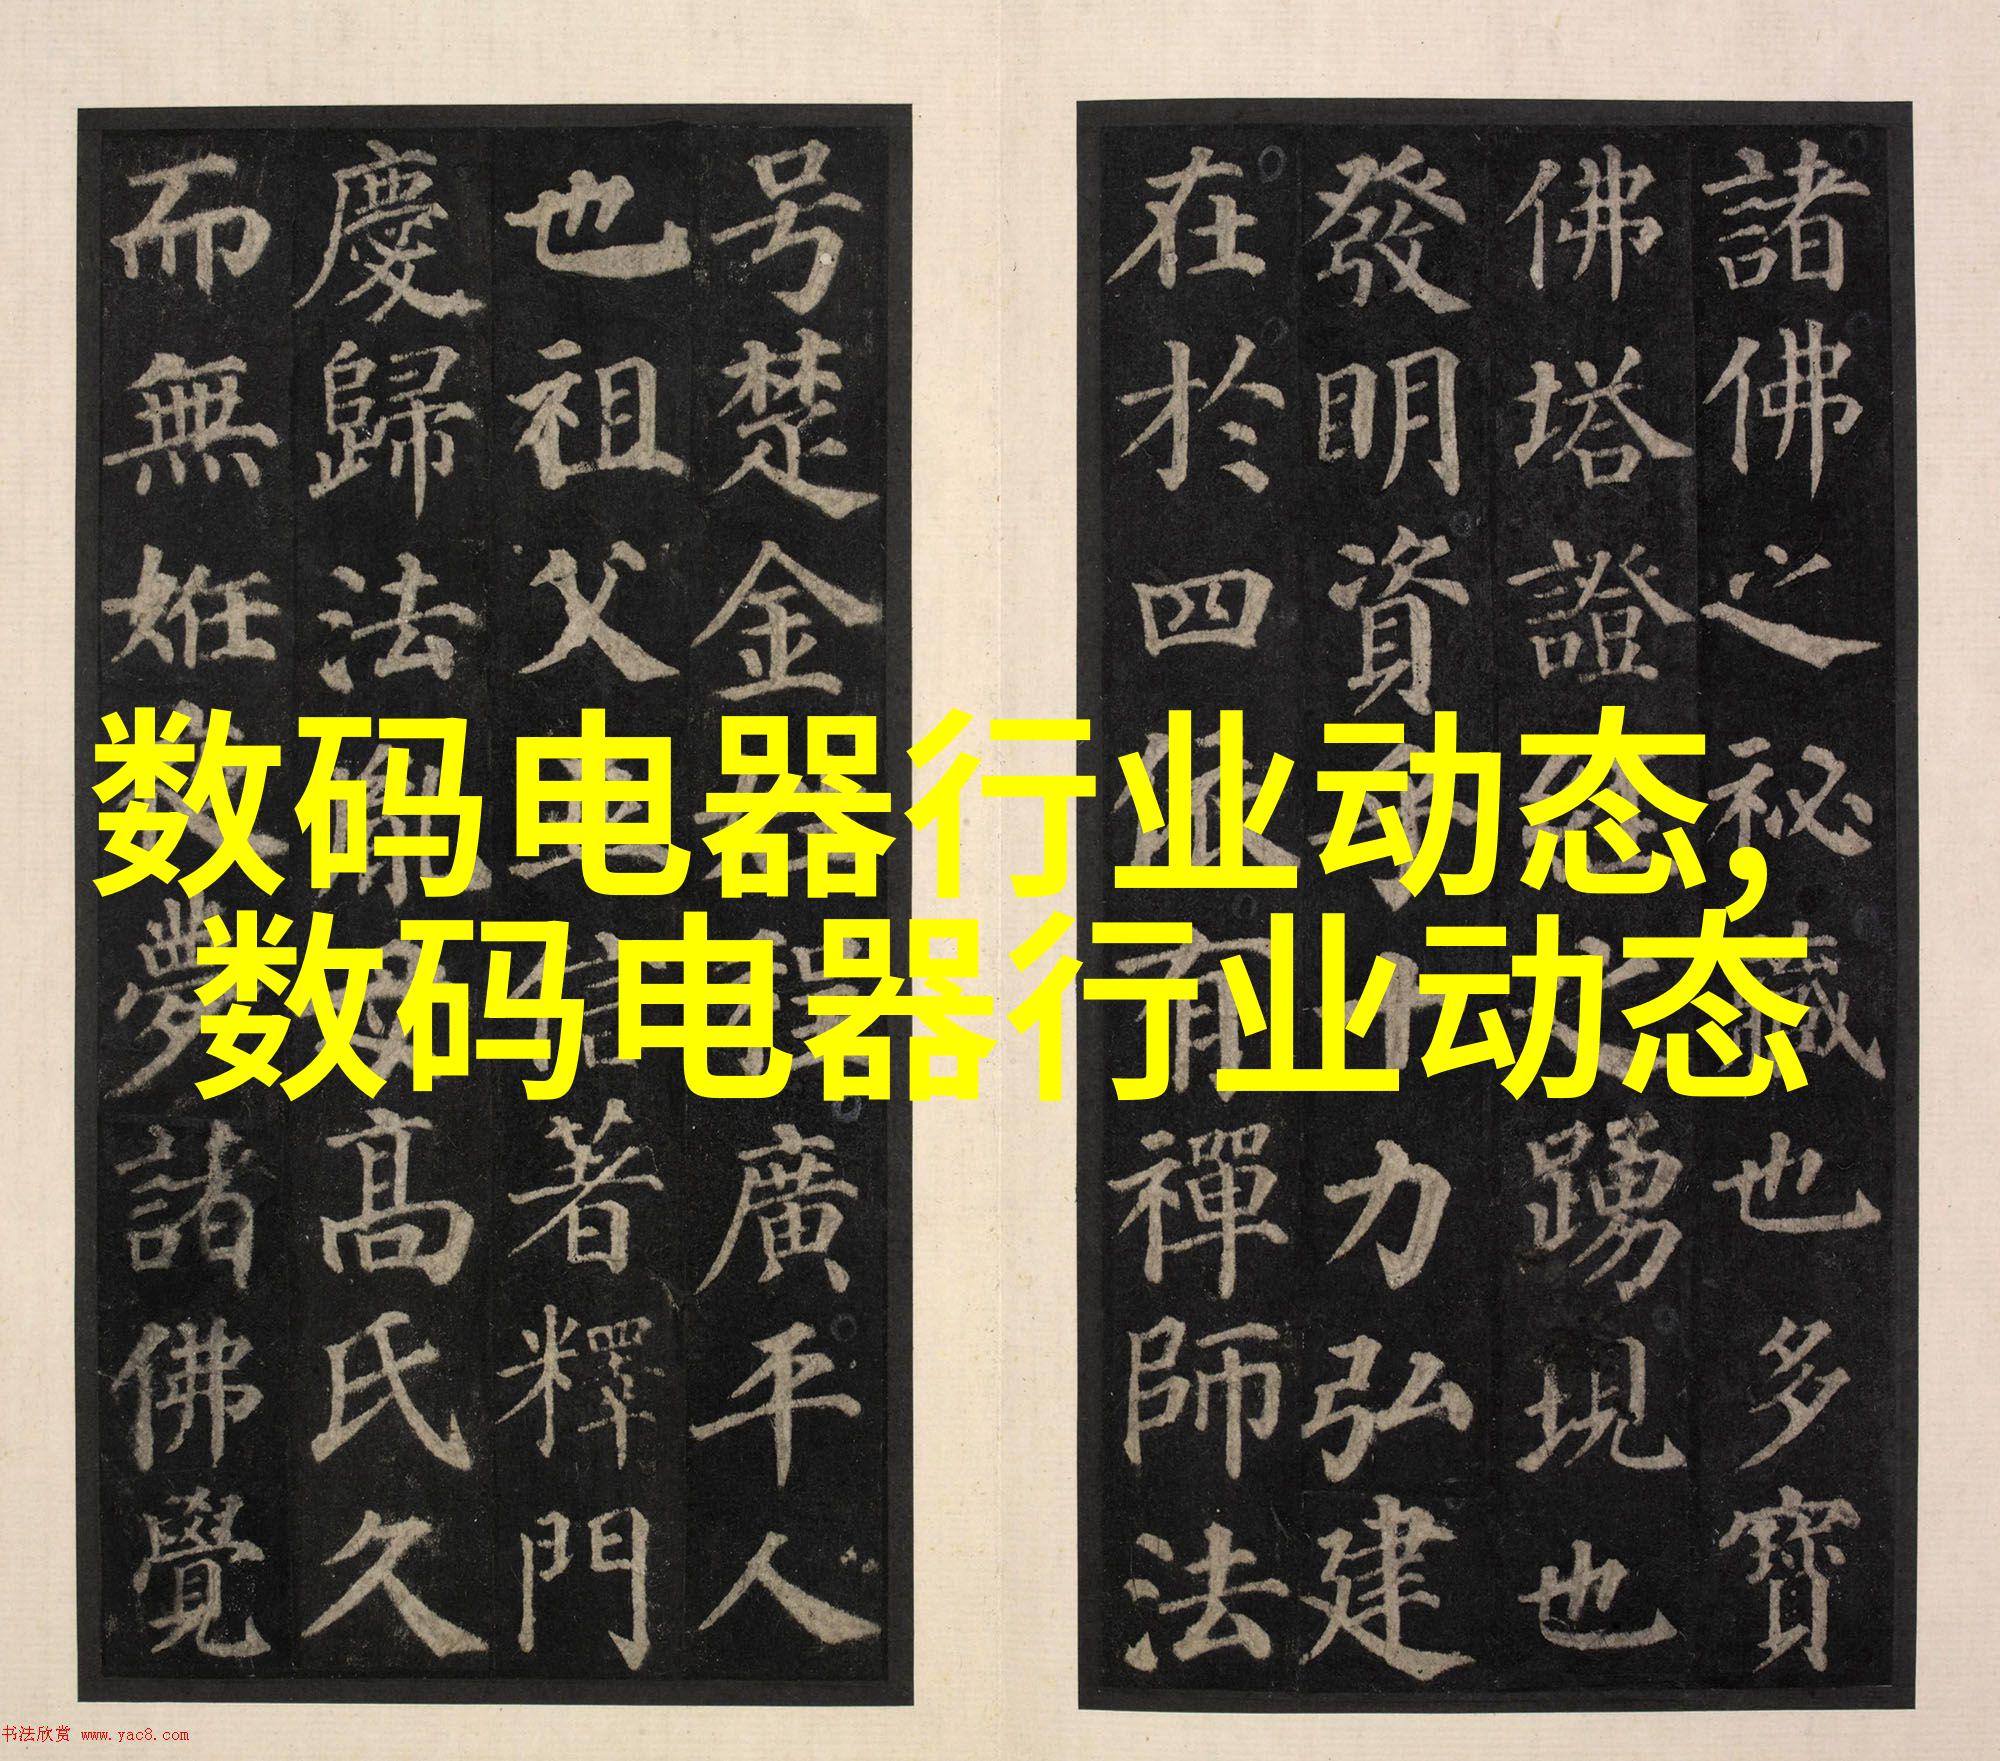 諸佛之祕藏也多寶
佛塔證經之踴現也
發明資乎十力弘建
在於四依有禪師法
号楚金姓程廣平人
也祖父並信著釋門
慶歸法胤母高氏久
而無姙夜夢諸佛覺
数码电器行业动态,
数码电器行业动态
书法欣赏 www.yac8.com